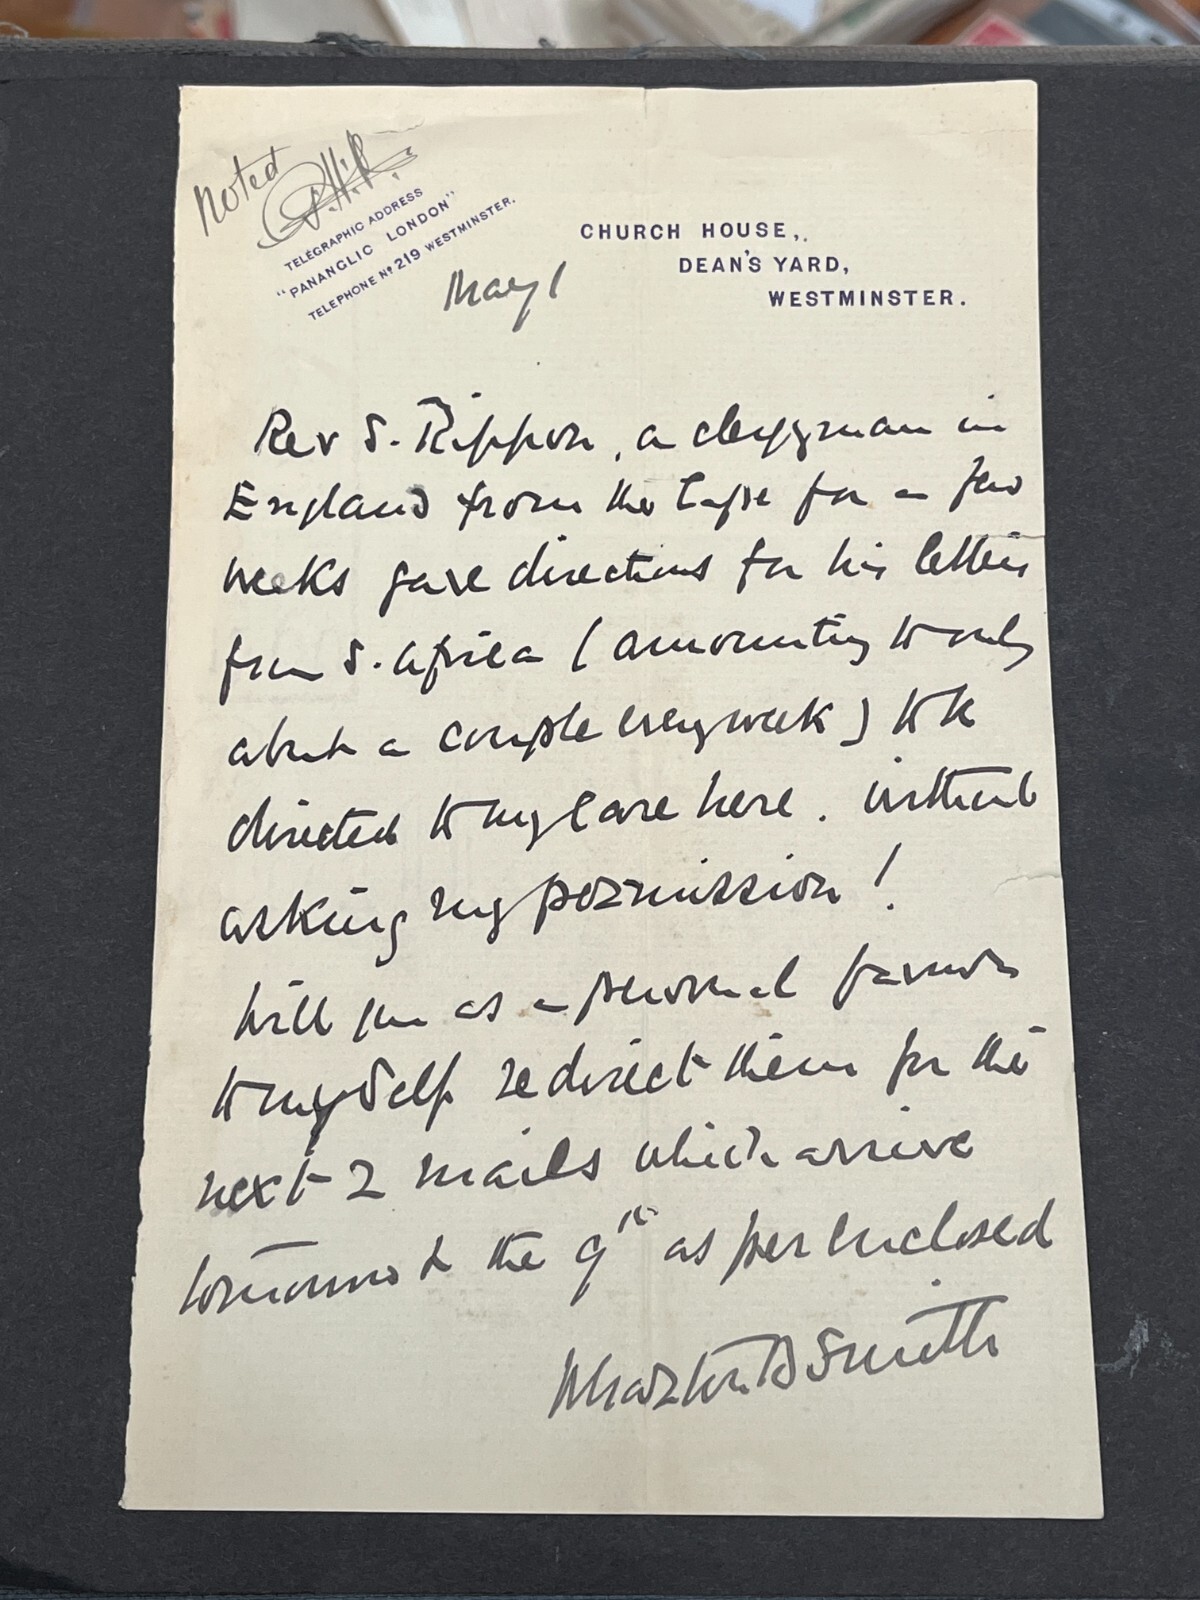 Noted
TELEGRAPHIC ADDRESS
"PANANGLIC LONDON"
TELEPHONE No 219 WESTMINSTER.
CHURCH HOUSE,
DEAN'S YARD,
WESTMINSTER.
May 1
Rev S. Rippon, a clergyman in
England from the Cape for a few
weeks gave directions for his letters
from S. Africa (amounting to only
about a couple every week) to be
directed to my care here. without
asking my permission!
Will you as a personal favour
to myself redirect them for the
next 2 mails which arrive
tomorrow & the 9th as per enclosed
Wharton B Smith